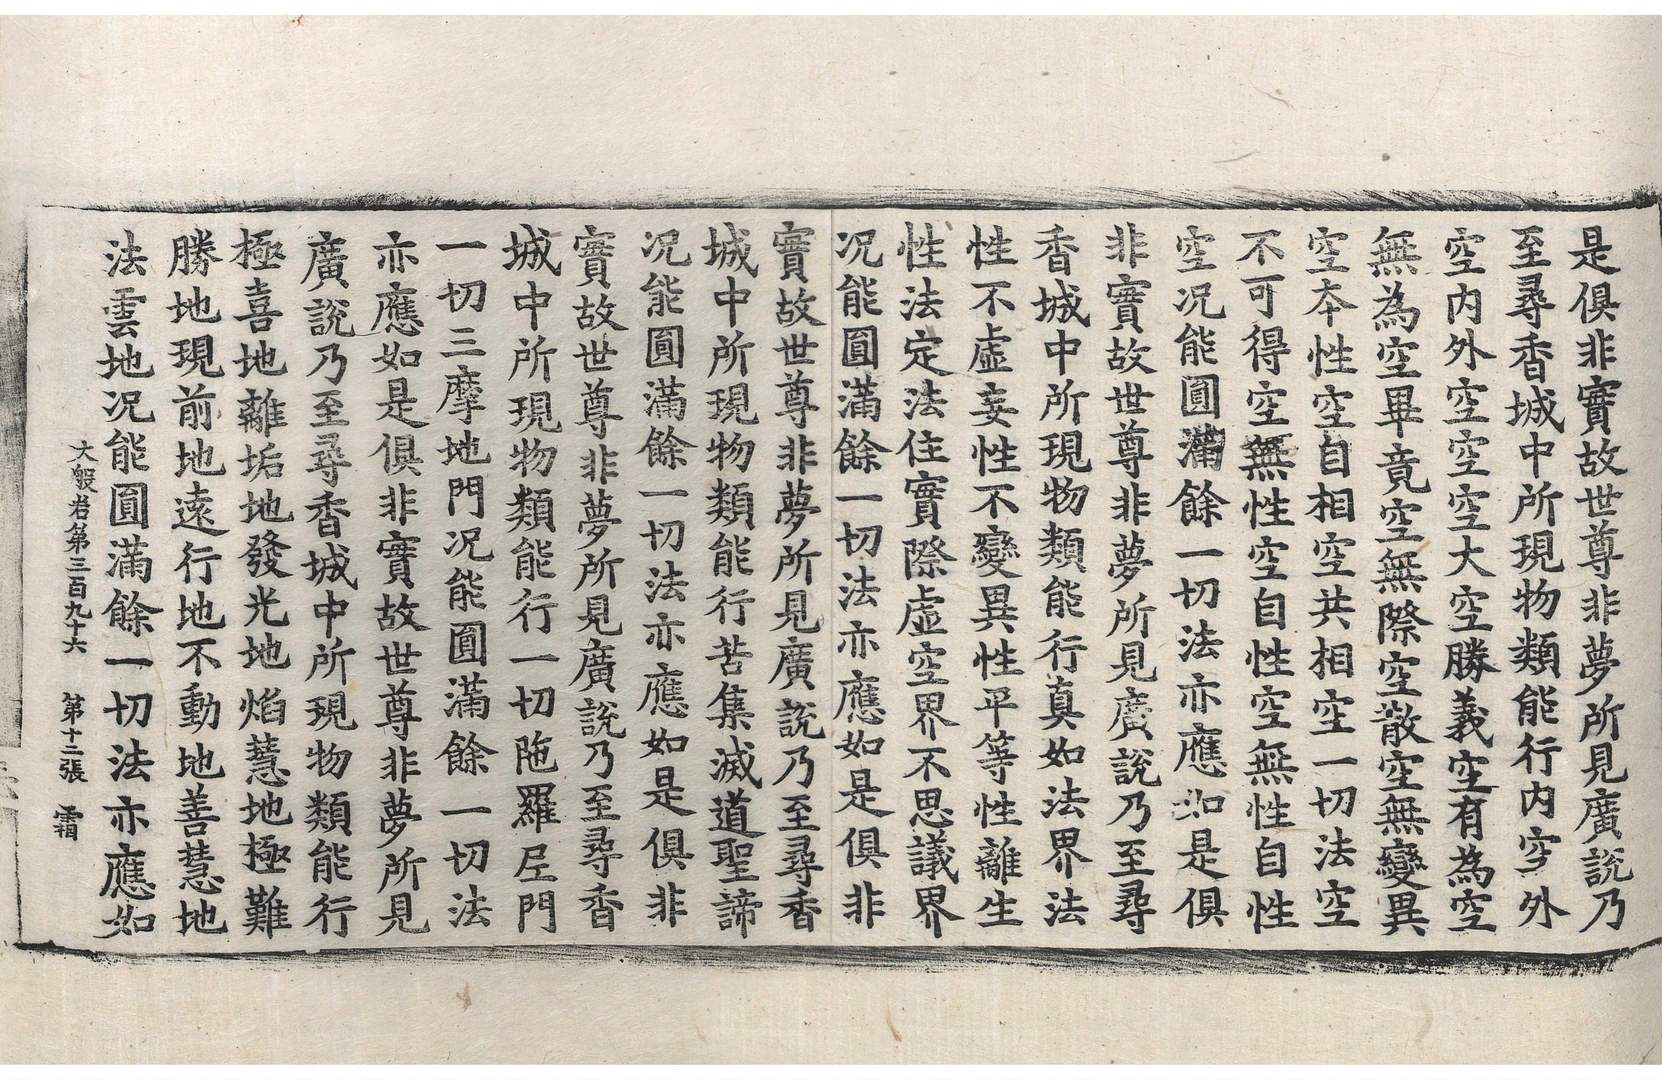 是俱非實故世尊非夢所見廣說乃
至尋香城中所現物類能行內空外
空內外空空空大空勝義空有為空
無為空畢竟空無際空散空無變異
空本性空自相空共相空一切法空
不可得空無性空自性空無性自性
空况能圓滿餘一切法亦應如是俱
非實故世尊非夢所見廣說乃至尋
香城中所現物類能行真如法界法
性不虛妄性不變異性平等性離生
性法定法住實際虛空界不思議界
况能圓滿餘一切法亦應如是俱非
實故世尊非夢所見廣說乃至尋香
城中所現物類能行苦集滅道聖諦
况能圓滿餘一切法亦應如是俱非
實故世尊非夢所見廣說乃至尋香
城中所現物類能行一切陁羅尼門
一切三摩地門况能圓滿餘一切法
亦應如是俱非實故世尊非夢所見
廣說乃至尋香城中所現物類能行
極喜地離垢地發光地焰慧地極難
勝地現前地遠行地不動地善慧地
法雲地况能圓滿餘一切法亦應如
大般若第三百九十六 第十二張 霜